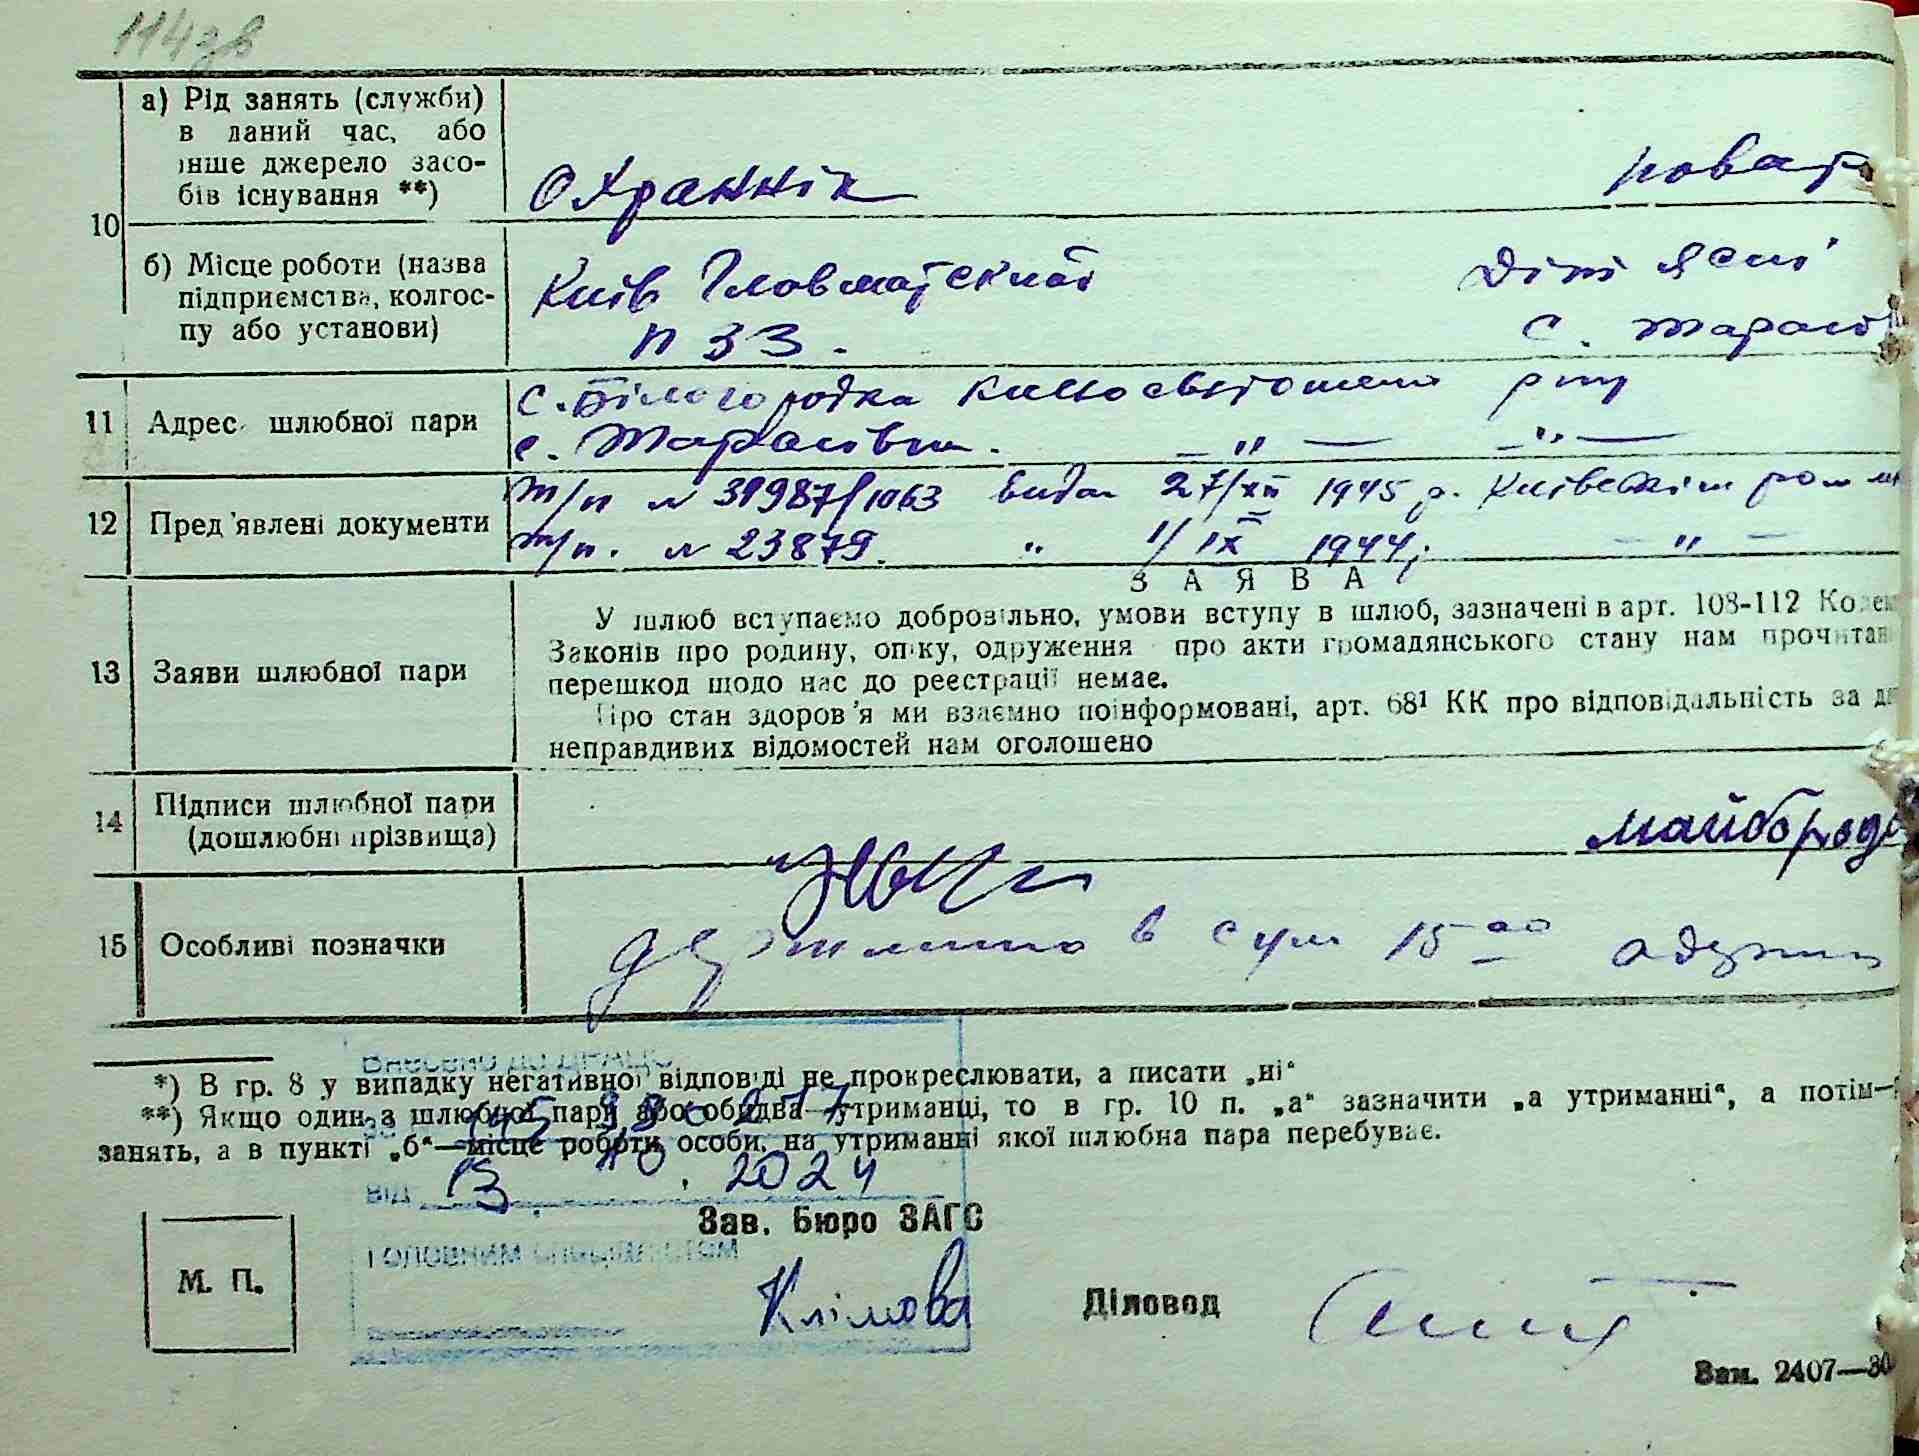 114зв
10
а) Рід занять (служби)
в даний час, або
інше джерело засо-
бів існування **)
Охраннік
повар
б) Місце роботи (назва
підприємства, колгос-
пу або установи)
Київ
Діт яслі
п 33.
с. Тарасів
11 Адрес шлюбної пари
с. Білогородка Києвосвятошинс р-ну
с. Тарасівка. — " — — " —
12 Пред'явлені документи
т/п № 39987/1063 видан 27/XII 1945 р. Київським
т/п. № 23879. " 1/IX 1944р. — " —
З А Я В А
13 Заяви шлюбної пари
У шлюб вступаємо добровільно, умови вступу в шлюб, зазначені в арт. 108-112 Кодек
Законів про родину, опіку, одруження про акти громадянського стану нам прочитан
перешкод щодо нас до реєстрації немає.
Про стан здоров'я ми взаємно поінформовані, арт. 68¹ КК про відповідальність за д
неправдивих відомостей нам оголошено
14 Підписи шлюбної пари
(дошлюбні прізвища)
Майборода
15 Особливі позначки
в сум 15 00
*) В гр. 8 у випадку негативної відповіді не прокреслювати, а писати „ні“
**) Якщо один з шлюбної пари, або обидва—утриманці, то в гр. 10 п. „а“ зазначити „а утриманні“, а потім—
занять, а в пункті „б“—місце роботи особи, на утриманні якої шлюбна пара перебуває.
Внесено до ДРАЦС
від 13. 10. 2024
Зав. Бюро ЗАГС
головним спеціалістом
М. П.
Клімова
Діловод
Зам. 2407—30